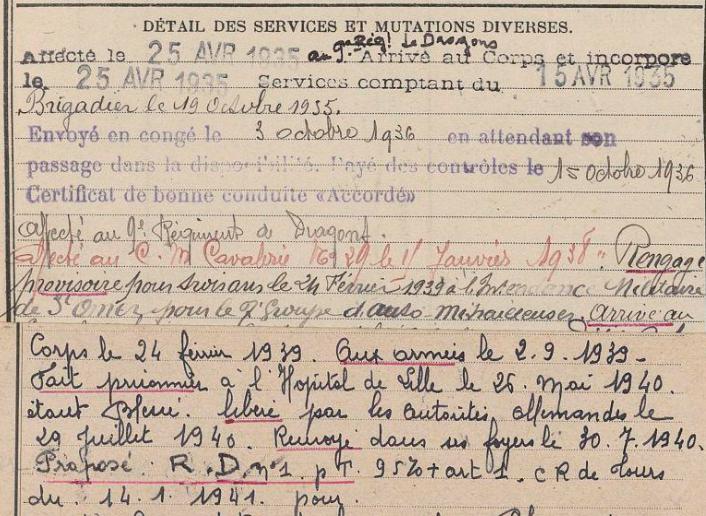 DÉTAIL DES SERVICES ET MUTATIONS DIVERSES.
Affecté le 25 AVR 1935 au 9e Régt de Dragons Arrivé au Corps et incorpore
le 25 AVR 1935 Services comptant du 15 AVR 1935
Brigadier le 19 Octobre 1935.
Envoyé en congé le 3 octobre 1936 en attendant son
passage dans la disponibilité. Rayé des contrôles le 15 Octobre 1936
Certificat de bonne conduite «Accordé»
affecté au 9e Régiment de Dragons.
affecté au C. M Cavalerie No 29 le 1er Janvier 1938. Rengagé
provisoire pour trois ans le 24 Février 1939 à l'Intendance Militaire
de St Omer pour le 2e Groupe d'auto mitrailleuses. Arrivé au
Corps le 24 février 1939. Aux armées le 2.9.1939-
Fait prisonnier à l'Hopital de Lille le 26. Mai 1940.
étant blessé. libéré par les autorités allemandes le
29 Juillet 1940. Renvoyé dans ses foyers le 30.7.1940.
Proposé R.D. n°1. pT. 95%+art 1. CR de Tours
du 14.1.1941. pour.